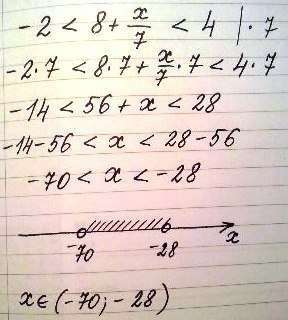 -2 < 8 + x/7 < 4 | · 7
-2·7 < 8·7 + x/7 · 7 < 4·7
-14 < 56 + x < 28
-14-56 < x < 28-56
-70 < x < -28
-70 -28 x
x ∈ (-70; -28)